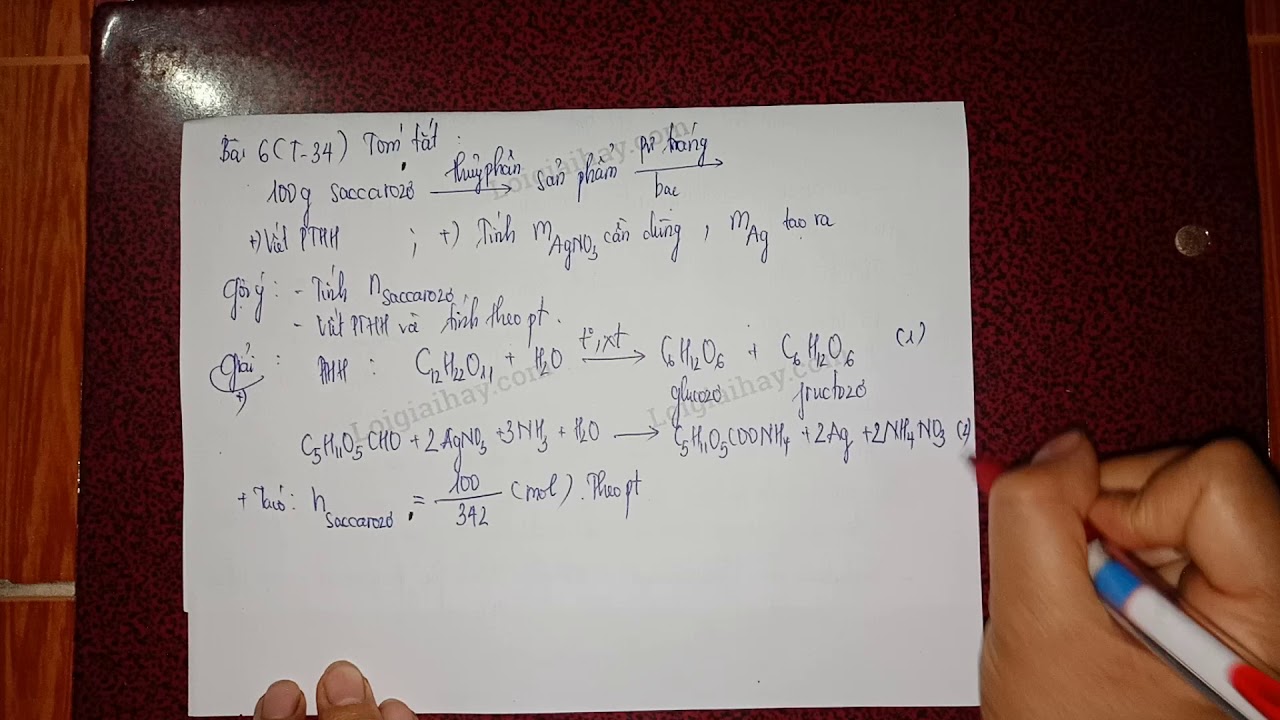 Bài 6 (T-34) Tóm tắt :
100g saccarozơ —thủy phân→ sản phẩm —pư tráng bạc→
+) Viết PTHH ; +) Tính mAgNO3 cần dùng, mAg tạo ra
Gợi ý: - Tính nsaccarozơ
- Viết PTHH và tính theo pt.
Giải : PTHH : C12H22O11 + H2O —t°, xt→ C6H12O6 + C6H12O6 (1)
+) glucozơ fructozơ
C5H11O5CHO + 2AgNO3 + 3NH3 + H2O → C5H11O5COONH4 + 2Ag + 2NH4NO3 (2)
+ Ta có: nsaccarozơ = 100/342 (mol). Theo pt
Loigiaihay.com
Loigiaihay.com
Loigiaihay.com